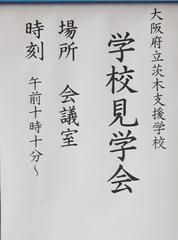 大阪府立茨木支援学校
学校見学会
場所 会議室
時刻 午前十時十分～